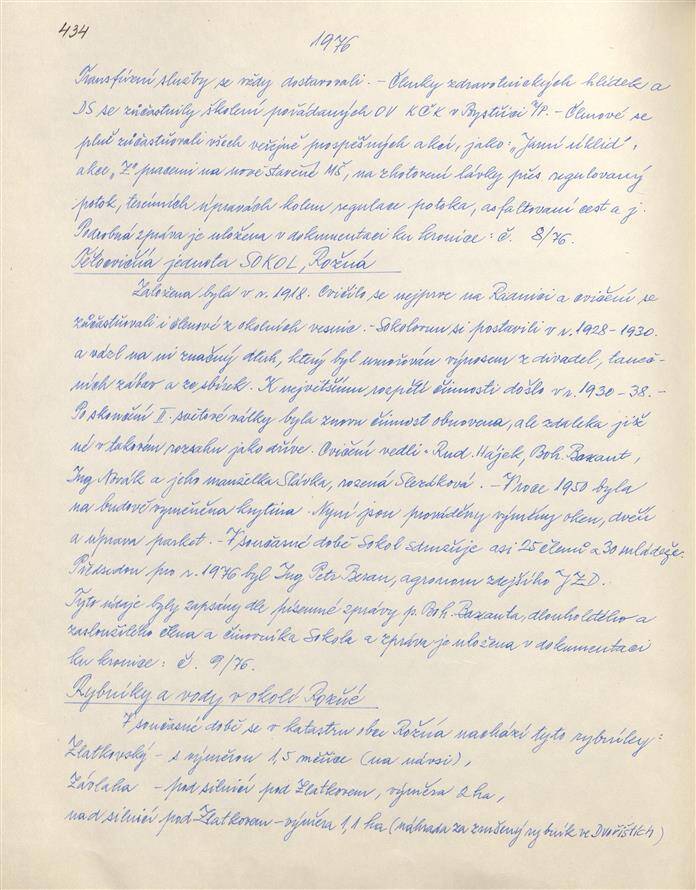 434
1976
Transfúzní služby se vždy dostavovali. - Členky zdravotnických hlídek a
DS se zúčastnily školení pořádaných OV KČK v Bystřici n/P. - Členové se
plně zúčastňovali všech veřejně prospěšných akcí, jako: "Jarní úklid",
akce "Z" pracemi na nové stavbě MŠ, na zhotovení lávky přes regulovaný
potok, terénních úpravách kolem regulace potoka, asfaltování cest a j.
Podrobná zpráva je uložena v dokumentaci ku kronice: č. 8/76.
Tělocvičná jednota SOKOL, Rožná
Založena byla v r. 1918. Cvičilo se nejprve na a cvičení se
zúčastňovali i členové z okolních vesnic. - Sokolovnu si postavili v r. 1928-1930.
a vázl na ní značný dluh, který byl umořován výnosem z divadel, taneč-
ních zábav a ze sbírek. K největšímu rozpětí činnosti došlo v r. 1930-38. -
Po skončení II. světové války byla znovu činnost obnovena, ale zdaleka již
né v takovém rozsahu jako dříve. Cvičení vedli - Rud. Hájek, Boh. Bazant,
Ing. Novák a jeho manželka Slávka, rozená Slezáková. - V roce 1950 byla
na budově vyměněna krytina. Nyní jsou prováděny výměny oken, dveří
a úprava parket. - V současné době Sokol sdružuje asi 25 členů a 30 mládeže.
Předsedou pro r. 1976 byl Ing. Petr Beran, agronom zdejšího JZD.
Tyto údaje byly zapsány dle písemné zprávy p. Boh. Bazanta, dlouholetého a
zasloužilého člena a činovníka Sokola a zpráva je uložena v dokumentaci
ku kronice: č. 9/76.
Rybníky a vody v okolí Rožné
V současné době se v katastru obce Rožná nachází tyto rybníky:
Zlatkovský - s výměrou 1,5 měřice (na návsi),
Závlaha - pod silnicí pod Zlatkovem, výměra 2 ha,
nad silnicí pod Zlatkovem - výměra 1,1 ha (náhrada za zrušený rybník ve Dvořištích)